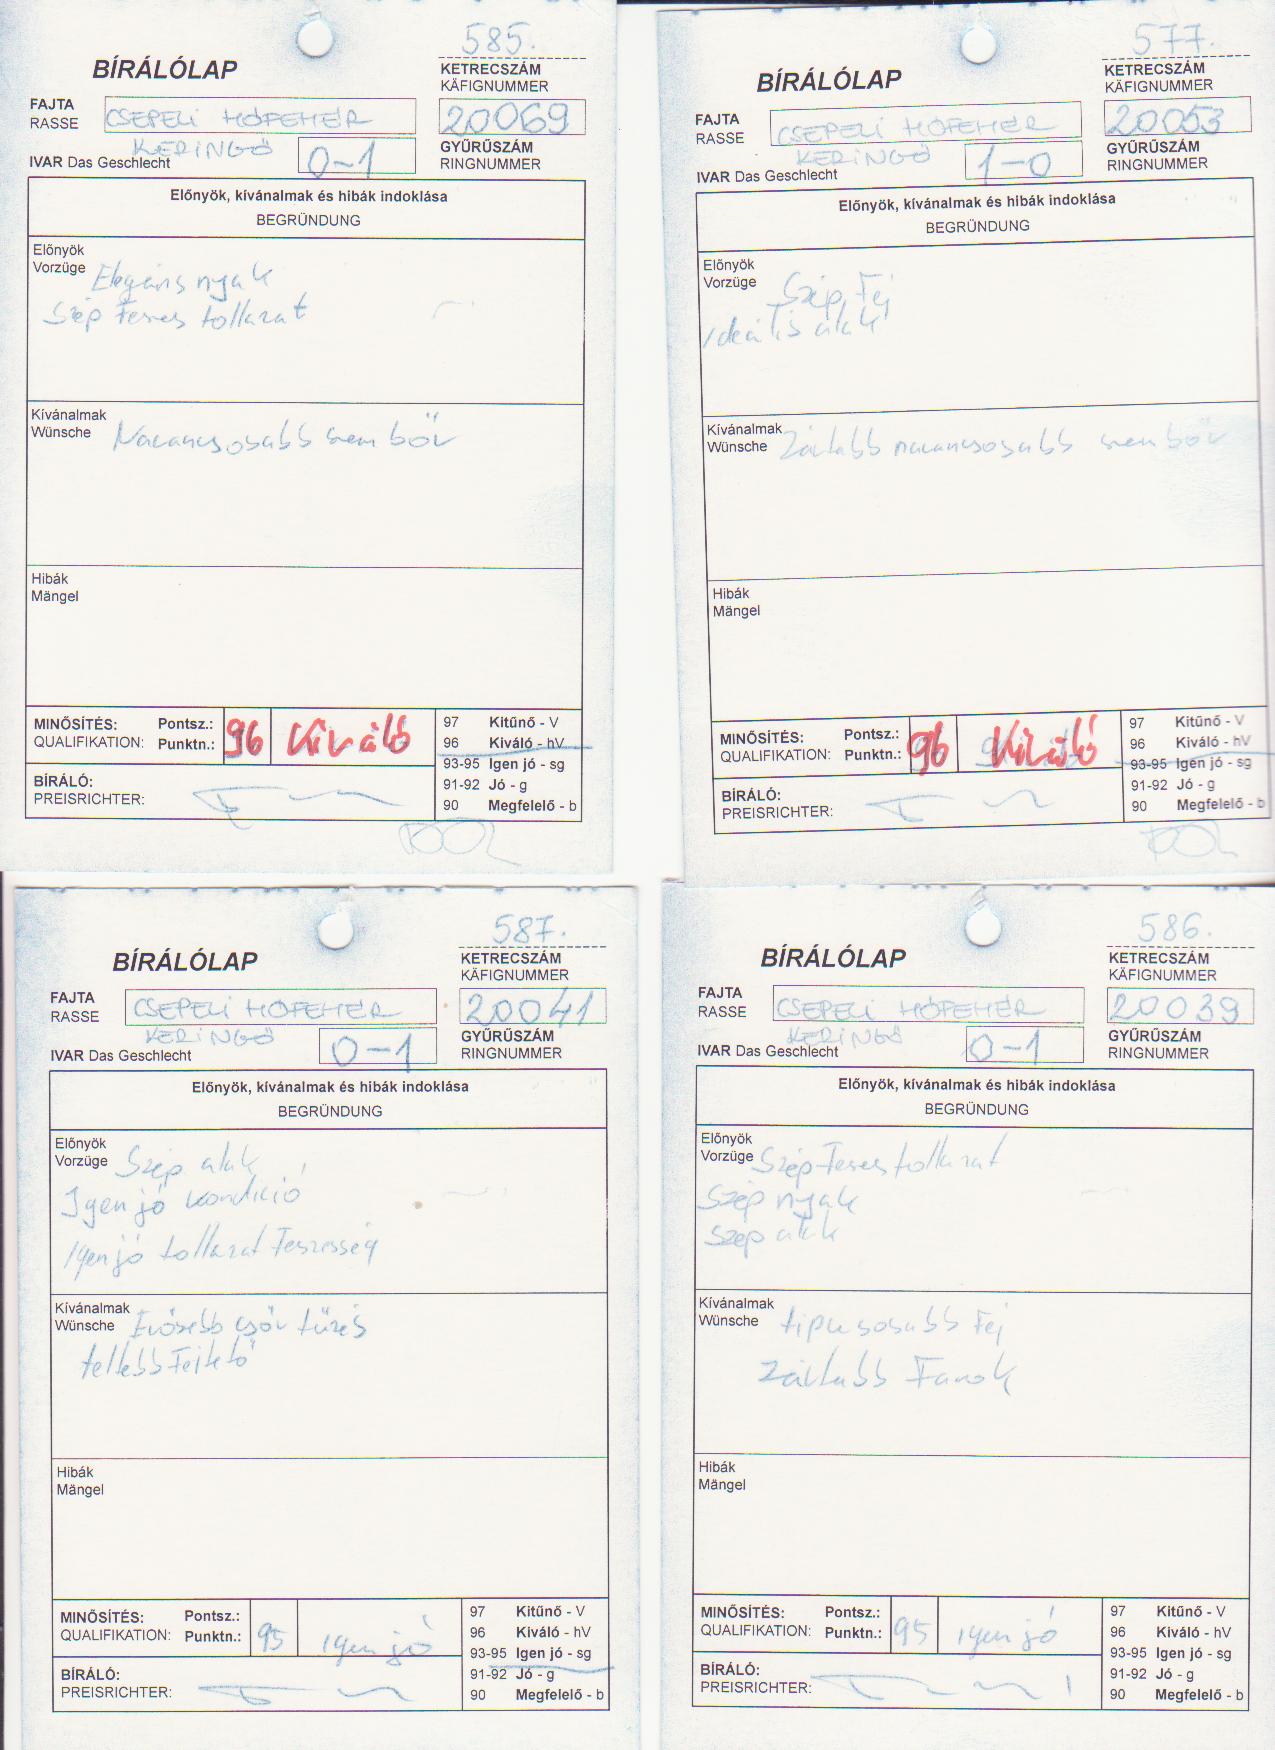 585.
BÍRÁLÓLAP
KETRECSZÁM
KÄFIGNUMMER
FAJTA
RASSE
CSEPELI HÓFEHÉR
KERINGŐ
20069
IVAR Das Geschlecht
0-1
GYŰRŰSZÁM
RINGNUMMER
Előnyök, kívánalmak és hibák indoklása
BEGRÜNDUNG
Előnyök
Vorzüge
Elegáns nyak
Szép feszes tollazat
Kívánalmak
Wünsche
Narancsosabb szem bőr
Hibák
Mängel
MINŐSÍTÉS:
QUALIFIKATION:
Pontsz.:
Punktn.:
96
Kiváló
97 Kitűnő - V
96 Kiváló - hV
93-95 Igen jó - sg
91-92 Jó - g
90 Megfelelő - b
BÍRÁLÓ:
PREISRICHTER:
577.
BÍRÁLÓLAP
KETRECSZÁM
KÄFIGNUMMER
FAJTA
RASSE
CSEPELI HÓFEHÉR
KERINGŐ
20053
IVAR Das Geschlecht
1-0
GYŰRŰSZÁM
RINGNUMMER
Előnyök, kívánalmak és hibák indoklása
BEGRÜNDUNG
Előnyök
Vorzüge
Szép fej
ideális alak
Kívánalmak
Wünsche
Zártabb narancsosabb szem bőr
Hibák
Mängel
MINŐSÍTÉS:
QUALIFIKATION:
Pontsz.:
Punktn.:
96
Kiváló
97 Kitűnő - V
96 Kiváló - hV
93-95 Igen jó - sg
91-92 Jó - g
90 Megfelelő - b
BÍRÁLÓ:
PREISRICHTER:
587.
BÍRÁLÓLAP
KETRECSZÁM
KÄFIGNUMMER
FAJTA
RASSE
CSEPELI HÓFEHÉR
KERINGŐ
20041
IVAR Das Geschlecht
0-1
GYŰRŰSZÁM
RINGNUMMER
Előnyök, kívánalmak és hibák indoklása
BEGRÜNDUNG
Előnyök
Vorzüge
Szép alak
Igen jó kondíció
Igen jó tollazat feszesség
Kívánalmak
Wünsche
Erősebb csőr tűzés
teltebb fejtető
Hibák
Mängel
MINŐSÍTÉS:
QUALIFIKATION:
Pontsz.:
Punktn.:
95
Igen jó
97 Kitűnő - V
96 Kiváló - hV
93-95 Igen jó - sg
91-92 Jó - g
90 Megfelelő - b
BÍRÁLÓ:
PREISRICHTER:
586.
BÍRÁLÓLAP
KETRECSZÁM
KÄFIGNUMMER
FAJTA
RASSE
CSEPELI HÓFEHÉR
KERINGŐ
20039
IVAR Das Geschlecht
0-1
GYŰRŰSZÁM
RINGNUMMER
Előnyök, kívánalmak és hibák indoklása
BEGRÜNDUNG
Előnyök
Vorzüge
Szép feszes tollazat
Szép nyak
szép alak
Kívánalmak
Wünsche
tipusosabb fej
Zártabb Farok
Hibák
Mängel
MINŐSÍTÉS:
QUALIFIKATION:
Pontsz.:
Punktn.:
95
Igen jó
97 Kitűnő - V
96 Kiváló - hV
93-95 Igen jó - sg
91-92 Jó - g
90 Megfelelő - b
BÍRÁLÓ:
PREISRICHTER: